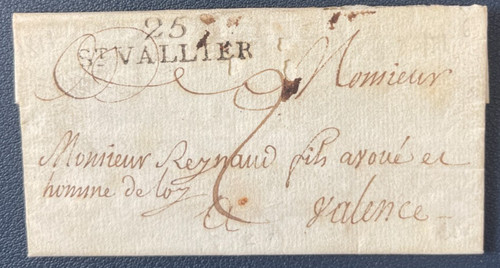 25
ST VALLIER
Monsieur
Monsieur Reynaud fils avoué et
homme de loy
a valence